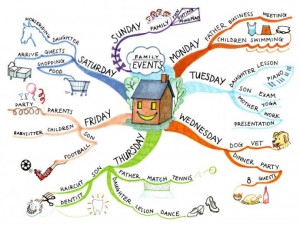 FAMILY
EVENTS
SUNDAY
FAMILY
MONDAY
FATHER BUSINESS MEETING
CHILDREN SWIMMING
TUESDAY
DAUGHTER LESSON PIANO
SON EXAM
MOTHER YOGA
WORK
PRESENTATION
WEDNESDAY
DOG VET
DINNER PARTY
8 GUESTS
THURSDAY
FATHER MATCH TENNIS
DAUGHTER LESSON DANCE
SON
HAIRCUT
DENTIST
FRIDAY
PARTY PARENTS
BABYSITTER CHILDREN
SON
FOOTBALL
SATURDAY
DAUGHTER
ARRIVE GUESTS
SHOPPING
FOOD